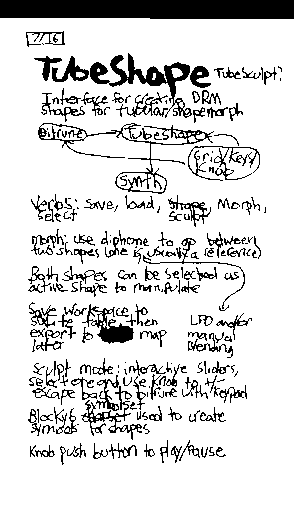 7/16
TubeShape TubeSculpt?
Interface for creating DRM
shapes for tubular/shapemorph
Bitrune TubeShape
Grid/Keys/
Knob
Synth
Verbs: save, load, shape, Morph,
select sculpt
morph: use diphone to go between
two shapes (one is usually a reference)
Both shapes can be selected as
active shape to manipulate
Save workspace to
SQLite table, then
export to map
later
LFO and/or
manual
blending
Sculpt mode: interactive sliders,
select one and use knob to +/-
escape back to bitrune with keypad
Blocky6 symbolset used to create
symbols for shapes
Knob push button to play/pause